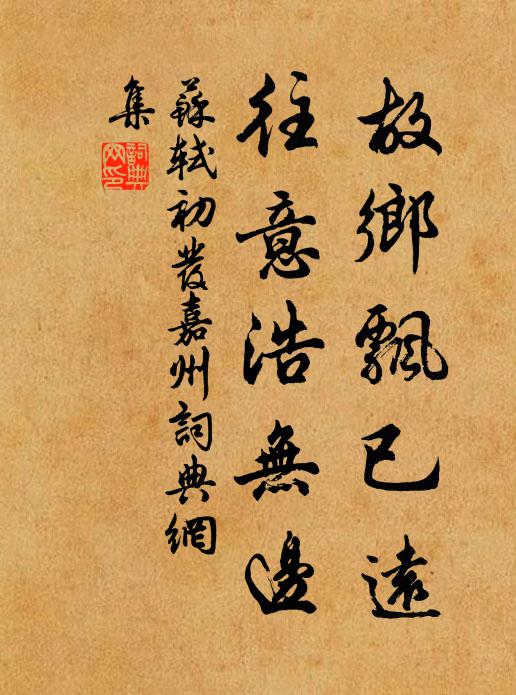 故鄉飄已遠
往意浩無邊
蘇軾初發嘉州詞典網
集
詞典網印